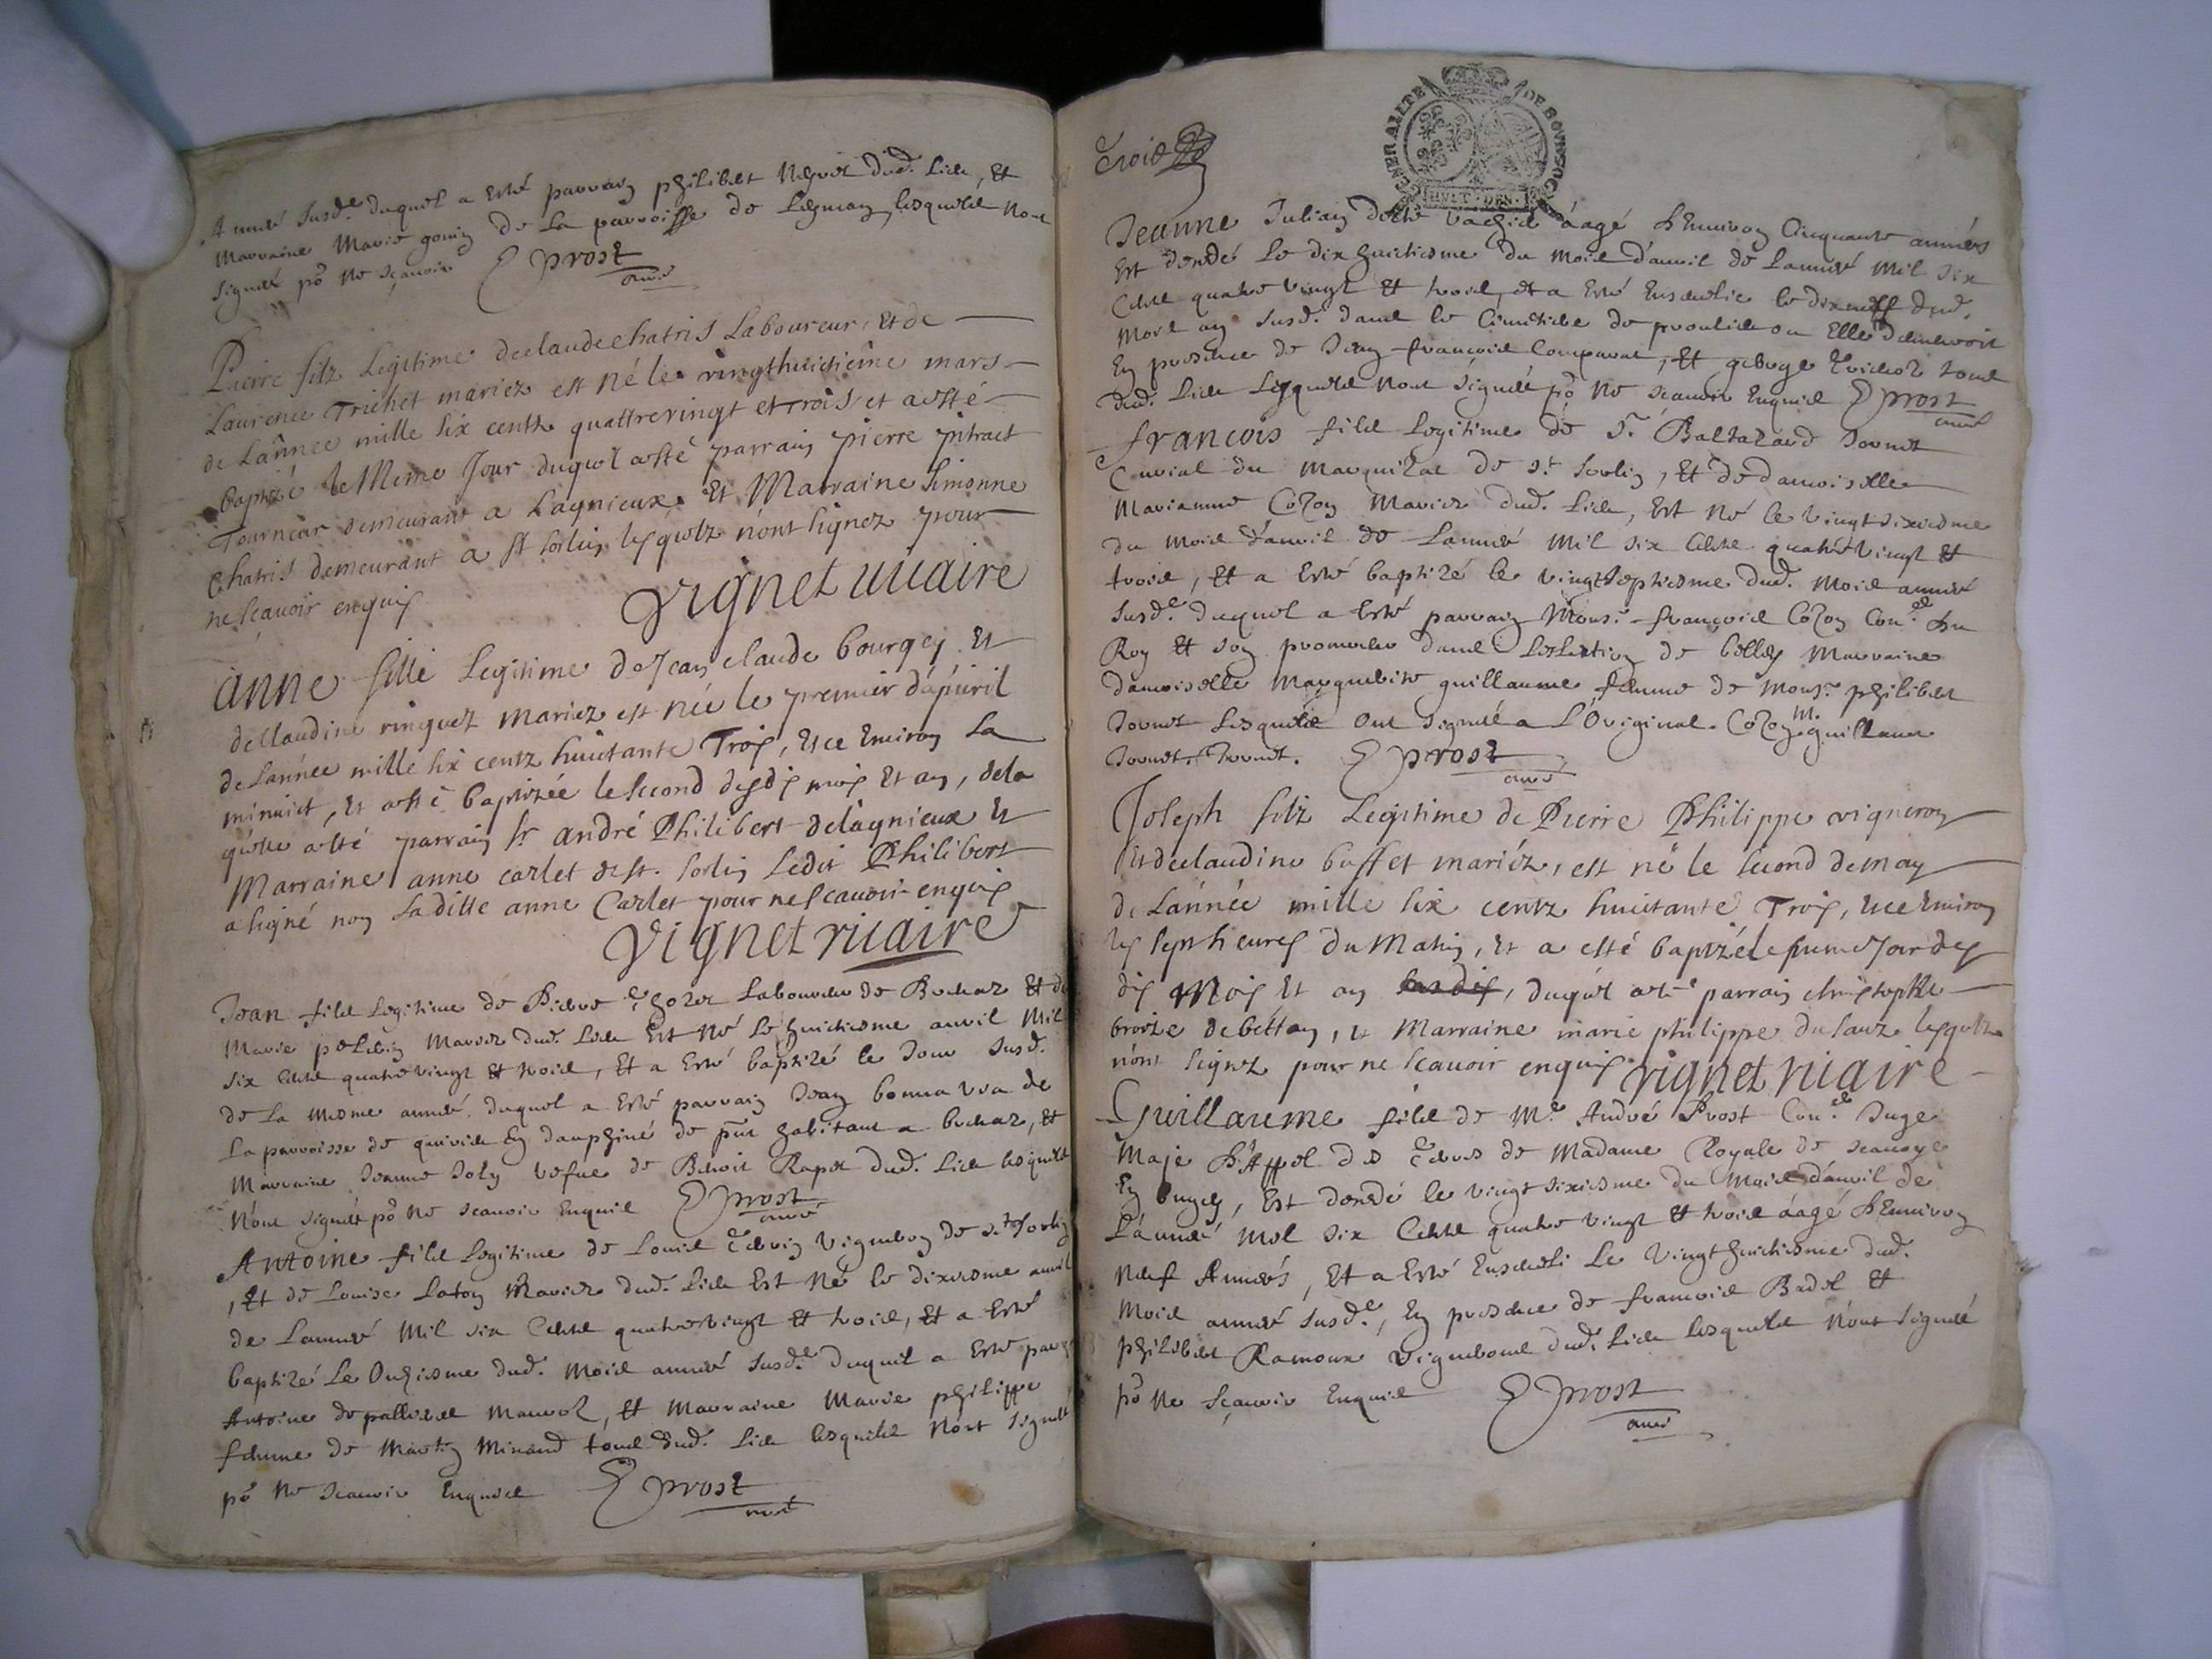 Année susd.e duquel a esté parrain philibert dud. lieu, Et
Marraine Marie gonin de La parroisse de Lagman, lesquels nont
signéz po.r ne sçavoir Prost
curé
Pierre filz Legitime de claude chatris Laboureur, et de
Laurence Trichet mariez est né le vingthuictieme mars
de Lânnee mille six centz quattrevingt et trois et a esté
baptizé le Meme Jour duquel a esté parrain pierre pitract
Tournear demeurant a Lagnieux. Et Marraine Simonne
Chatris demeurant a st sorlin, lesquelz n'ont signez pour
ne scavoir enquis
Vignet vicaire
Anne fille Legitime de Jean claude bourgey Et
de Claudine vinquez mariez est née le premier d'apuril
de Lannee mille six centz huictante Trois, Et ce Environ La
minuict, Et a esté baptizée le second desdis mois Et an, de la
quelle a esté parrain sr andré Philibert de lagnieux Et
Marraine anne carlet de st. sorlin Ledit Philibert
a signé non La ditte anne Carlet pour ne scavoir enquis
Vignet vicaire
Jean fils Legitime de Pierre Laboureur de Et de
Marie Mariez dud. Lieu Est né Le huictiesme avril Mil
six cents quatre vingt Et trois, Et a Esté baptizé le Jour susd.
de La mesme année. duquel a Esté parrain Jean bonnavra de
La parroisse de quirieu En dauphiné de pnt habitant a, Et
Marraine Jeanne Joly vefue de Benoit Rapet dud. Lieu lesquels
N'ont signéz po.r ne scavoir Enquis Prost
curé
Antoine fils Legitime de Louis Vigneron de st. sorlin
, Et de Louise Laton Mariez dud. Lieu Est né le dixiesme avril
de Lannée Mil six Cents quatre vingt Et trois, Et a Esté
baptizé Le Onziesme dud. Mois année susd.e Duquel a Esté parrain
Antoine, Et Marraine Marie philippe
femme de Martin Minand tous dud. Lieu lesquels N'ont signéz
po.r ne scavoir Enquis Prost
curé
Trois
GENERALITE DE BOURGOG
HUIT. DEN.
Jeanne Julian âagé d'Environ Cinquante années
Est decedé Le dix huictiesme du mois d'avril de Lannée mil six
Cents quatre vingt Et trois, et a Esté Enseuelie le dixneuff dud.
Mois an susd. dans le Cimetiere de proulieu ou Elle demeuroit
En presence de Jean francois Comparat, Et George Trichot tous
dud. Lieu Lesquels n'ont signéz po.r ne scavoir Enquis Prost
curé
francois fils Legitime de S.r Baltazard Jovnet
Curial du Marquizat de st. sorlin, Et de damoiselle
Marianne Cozon Mariez dud. Lieu, Est né le vingt sixiesme
du mois d'avril de Lannée Mil six Cents quatre vingt Et
trois, Et a Esté baptizé le vingt septiesme dud. Mois année
susd.e duquel a Esté parrain Mons.r francois Cozon Con.er du
Roy Et son procureur dans Leslection de belley Marraine
damoiselle Marguerite guillaume femme de Mons.r philibert
Jovnet Lesquels Ont signéz a L'Original. Cozon. M. guillaume
Jovnet. Jovnet. Prost
curé
Joseph filz Legitime de Pierre Philippe vigneron
Et de claudine buffet mariéz, est né le second de may
de Lannée mille six centz huictante Trois, Et ce Environ
les sept heures du Matin, Et a esté baptizé le jour des
dis Mois Et an, duquel a esté parrain christophle
de bettan, Et Marraine marie philippe du sault lesquelz
n'ont signez pour ne scavoir enquis Vignet vicaire
Guillaume fils de M.e André Prost Con.er Juge
Maje d'Appel des Terres de Madame Royale de scavoye
En bugey, Est decedé le vingt sixiesme du Mois d'avril de
L'année Mil six Cents quatre vingt Et trois âagé d'Environ
Neuf Années, Et a Esté Enseueli Le Vingt huictiesme dud.
Mois année susd.e, En presence de francois Badel Et
philibert Ramoux Vignerons dud. Lieu lesquels N'ont signéz
po.r ne sçavoir Enquis Prost
curé